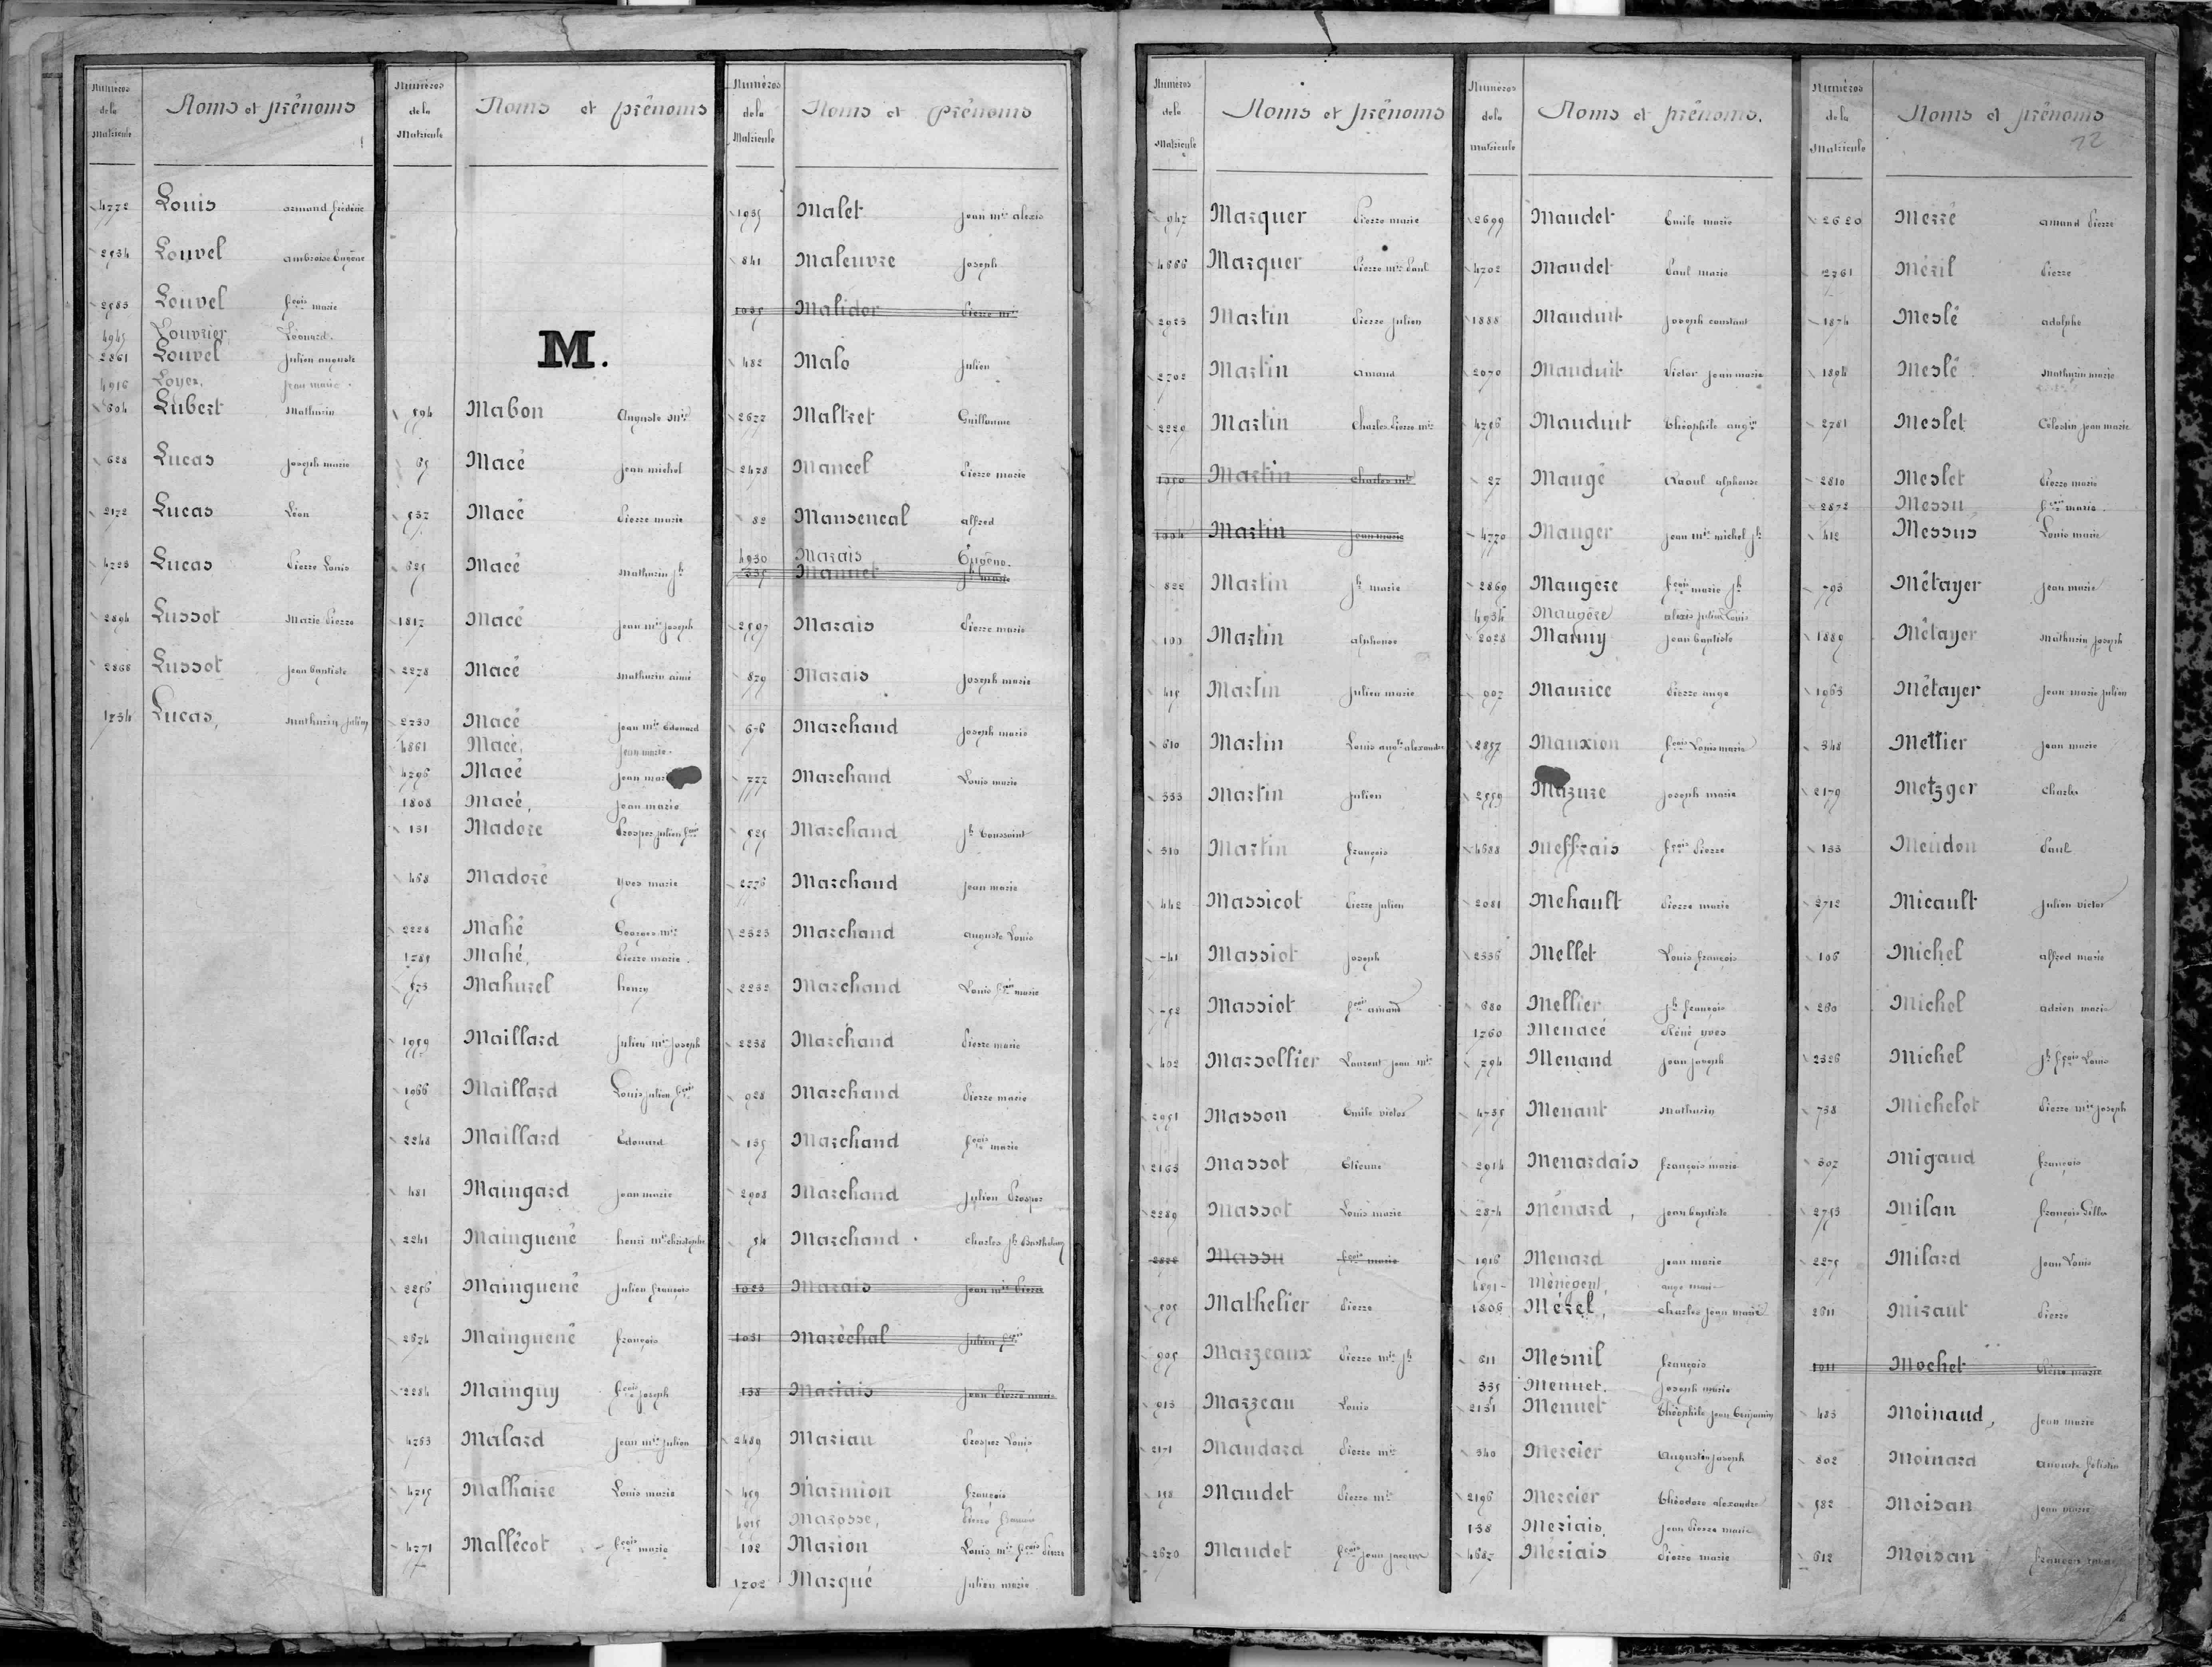 Numéros de la Matricule
Noms et prénoms
4772 Louis armand frédéric
2534 Louvel ambroise Eugène
2583 Louvel fçois marie
4945 Louvrier Léonard.
2861 Louvel Julien auguste
4916 Loyer, Jean marie.
604 Lubert Mathurin
628 Lucas Joseph marie
2172 Lucas Léon
4728 Lucas Pierre Louis
2894 Lussot Marie Pierre
2868 Lussot Jean baptiste
1734 Lucas, Mathurin Julien
Numéros de la Matricule
Noms et prénoms
M.
594 Mabon Auguste mie
65 Macé Jean michel
557 Macé Pierre marie
625 Macé Mathurin Jh
1817 Macé Jean mie Joseph
2278 Macé Mathurin aimé
2750 Macé Jean mie Edouard
4861 Macé, Jean marie.
4796 Macé Jean
1808 Macé, Jean marie
131 Madore Prosper Julien fçois
468 Madoré Yves marie
2228 Mahé Georges mie
1785 Mahé, Pierre marie.
573 Mahurel henry
1959 Maillard Julien mie Joseph
1966 Maillard Louis Julien fçois
2248 Maillard Edouard
481 Maingard Jean marie
2241 Mainguené henri mie christophe
2256 Mainguené Julien françois
2674 Mainguené françois
2284 Mainguy fçois Joseph
4763 Malard Jean mie Julien
4715 Malhaire Louis marie
4771 Mallécot fçois marie
Numéros de la Matricule
Noms et Prénoms
1935 Malet Jean mie alexis
841 Maleuvre Joseph
1035 Malidor Pierre mie
482 Malo Julien
2677 Maltret Guillaume
2478 Mancel Pierre marie
82 Manseneal alfred
4930 Marais Eugène.
335 Mannet Jh marie
2597 Marais Pierre marie
879 Marais Joseph marie
676 Marchand Joseph marie
777 Marchand Louis marie
525 Marchand Jh toussaint
2776 Marchand Jean marie
2323 Marchand auguste Louis
2232 Marchand Louis fçois marie
2238 Marchand Pierre marie
928 Marchand Pierre marie
135 Marchand fçois marie
2908 Marchand Julien Prosper
54 Marchand charles Jh Barthélemy
1023 Marais Jean mie Pierre
1031 Maréchal Julien fçois
138 Mariais Jean Pierre marie
2489 Marian Prosper Louis
459 Marmion françois
4915 Marosse, Pierre
102 Marion Louis mie fçois Pierre
1702 Marqué Julien marie
Numéros de la Matricule
Noms et prénoms
947 Marquer Pierre marie
4666 Marquer Pierre mie Paul
2923 Martin Pierre Julien
2702 Martin Amand
2229 Martin Charles Pierre mie
1350 Martin Charles mie
1004 Martin Jean marie
822 Martin Jh marie
100 Martin alphonse
415 Martin Julien marie
610 Martin Louis augte alexandre
333 Martin Julien
310 Martin françois
442 Massicot Pierre Julien
741 Massiot Joseph
752 Massiot fçois amand
402 Marsollier Laurent Jean mie
2951 Masson Emile victor
2165 Massot Etienne
2289 Massot Louis marie
2828 Massu fçois marie
505 Mathelier Pierre
905 Marzeaux Pierre mie Jh
913 Marzeau Louis
2171 Maudard Pierre mie
158 Maudet Pierre mie
2620 Maudet fçois Jean Jacques
Numéros de la matricule
Noms et prénoms.
2699 Maudet Emile marie
4702 Maudet Paul marie
1888 Mauduit Joseph constant
2070 Mauduit Victor Jean marie
4756 Mauduit Théophile augtin
27 Maugé Raoul alphonse
4770 Mauger Jean mie michel Jh
2869 Maugère fçois marie Jh
4934 Maugère alexis Julien Louis
2028 Mauny Jean baptiste
907 Maurice Pierre ange
2857 Mauxion fçois Louis marie
2559 Mazure Joseph marie
4688 Meffrais fçois Pierre
2081 Mehault Pierre marie
2336 Mellet Louis françois
680 Mellier Jh françois
1760 Menacé Réné yves
794 Menand Jean Joseph
4735 Menant Mathurin
2914 Menardais françois marie
2874 Ménard, Jean baptiste
1916 Menard Jean marie
4891 Ménegent, ange marie
1806 Mérel, Charles Jean marie
611 Mesnil françois
335 Menuet. Joseph marie
2131 Menuet Théophile Jean Benjamin
340 Mercier Augustin Joseph
2196 Mercier Théodore alexandre
138 Meriais, Jean Pierre marie
4687 Meriais Pierre marie
Numéros de la Matricule
Noms et prénoms
12
2620 Merré amand Pierre
2761 Méril Pierre
1874 Meslé adolphe
1894 Meslé Mathurin marie
2781 Meslet Célestin Jean marie
2810 Meslet Pierre marie
2872 Messu, fçois marie.
412 Messus Louis marie
793 Métayer Jean marie
1889 Métayer Mathurin Joseph
1963 Métayer Jean marie Julien
348 Mettier Jean marie
2179 Metzger Charles
133 Meudon Paul
2712 Micault Julien victor
106 Michel alfred marie
260 Michel adrien marie
2326 Michel Jh fçois Louis
738 Michelot Pierre mie Joseph
307 Migaud françois
2753 Milan françois Gilles
2275 Milard Jean Louis
2611 Miraut Pierre
1011 Mochet Réné marie
483 Moinaud, Jean marie
802 Moinard
582 Moisan Jean marie
612 Moisan françois marie